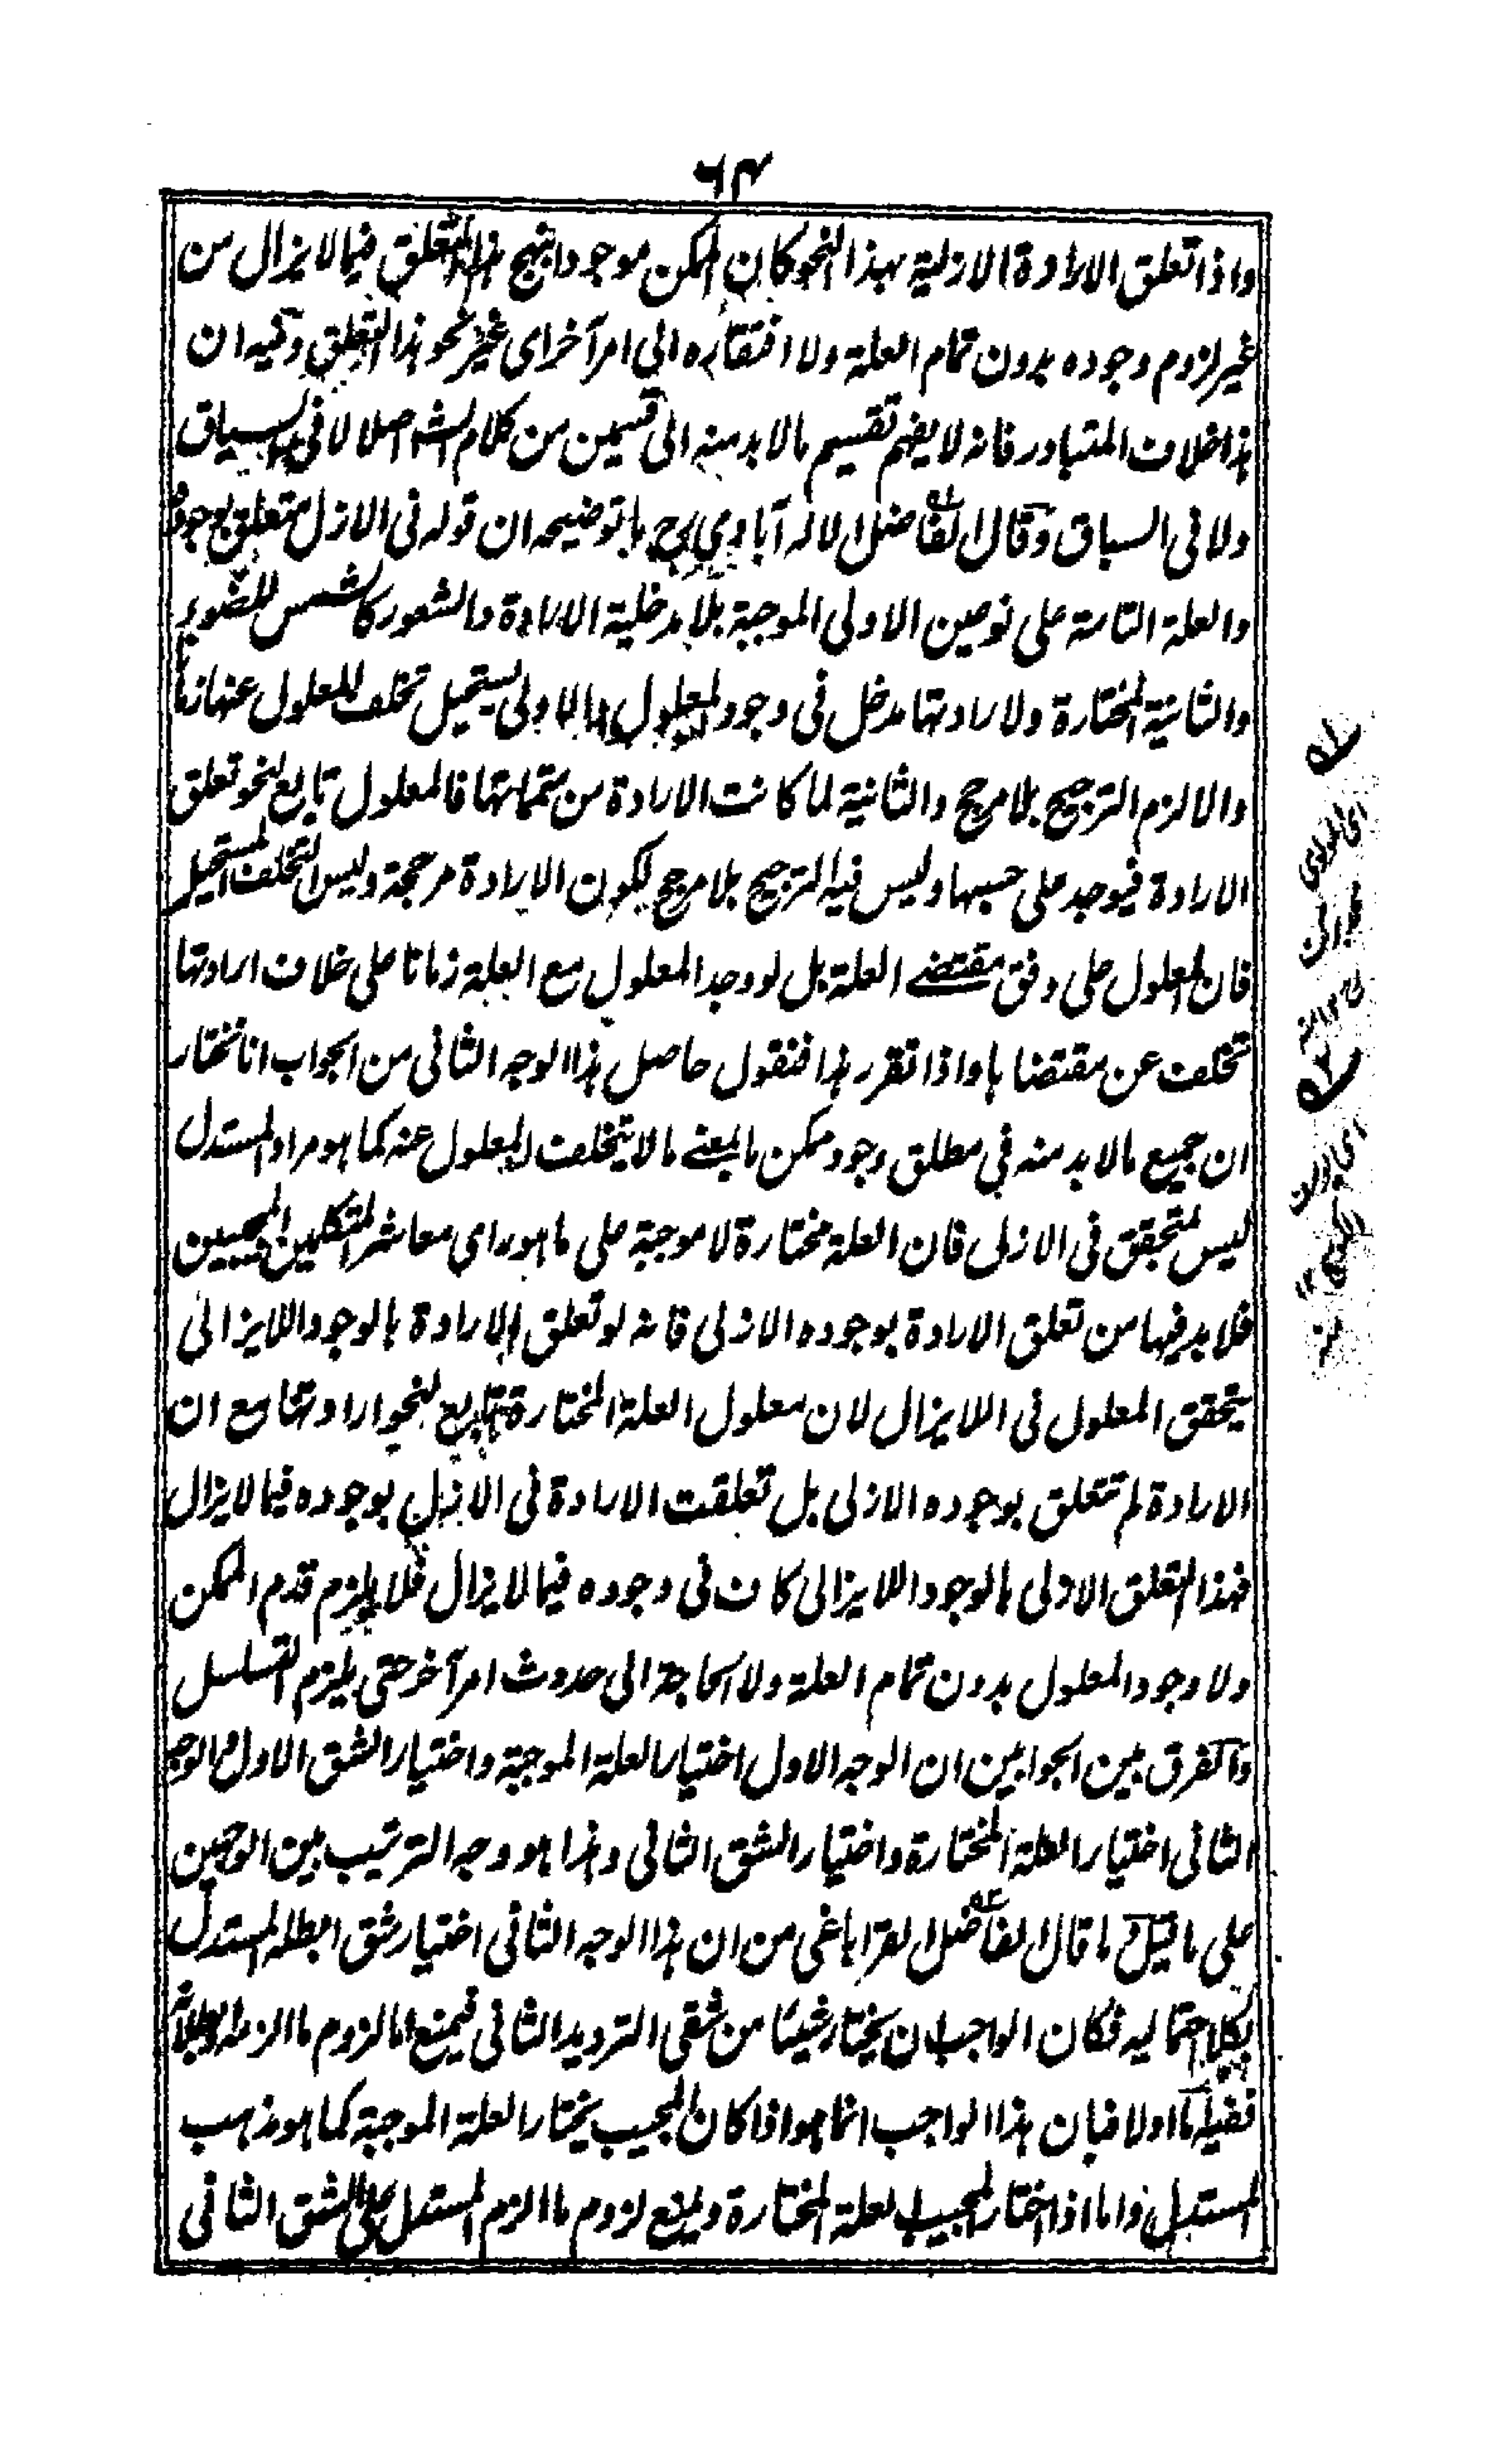 ٦٣
واذا تعلق الارادة الازلية بهذا النحو كان الممكن موجودا بنهج هذا التعلق فيما لا يزال من
غير لزوم وجوده بدون تمام العلة ولا افتقاره الى امر آخر اى غير نحو هذا التعلق وفيه ان
هذا خلاف المتبادر فانه لا يفهم تقسيم ما لا بد منه الى قسمين من كلام الشه اصلا لا فى السياق
ولا فى السباق وقال الفاضل الاله آبادي رح ما توضيحه ان قوله فى الازل متعلق بوجوده
والعلة التامة على نوعين الاولى الموجبة بلا مدخلية الارادة والشعور كالشمس للضوء
والثانية المختارة ولارادتها مدخل فى وجود المعلول اما الاولى يستحيل تخلف المعلول عنها زمانا
والا لزم الترجيح بلا مرجح والثانية لما كانت الارادة من متمماتها فالمعلول تابع لنحو تعلق
الارادة فيوجد على حسبها وليس فيه الترجيح بلا مرجح لكون الارادة مرجحة وليس التخلف المستحيل
فان المعلول على وفق مقتضى العلة بل لو وجد المعلول مع العلة زمانا على خلاف ارادتها
تخلف عن مقتضاها واذا تقرر هذا فنقول حاصل هذا الوجه الثانى من الجواب انا نختار
ان جميع ما لا بد منه في مطلق وجود ممكن ما بمعنى ما لا يتخلف المعلول عنه كما هو مراد المستدل
ليس بمتحقق فى الازل فان العلة مختارة لا موجبة على ما هو راى معاشر المتكلمين المجيبين
فلا بد فيها من تعلق الارادة بوجوده الازلى فانه لو تعلق الارادة بالوجود اللايزالى
يتحقق المعلول فى اللايزال لان معلول العلة المختارة تابع لنحو ارادتها مع ان
الارادة لم تتعلق بوجوده الازلى بل تعلقت الارادة فى الازل بوجوده فيما لا يزال
فهذا التعلق الازلى بالوجود اللايزالى كاف فى وجوده فيما لا يزال فلا يلزم قدم الممكن
ولا وجود المعلول بدون تمام العلة ولا الحاجة الى حدوث امر آخر حتى يلزم التسلسل
والفرق بين الجوابين ان الوجه الاول اختيار العلة الموجبة واختيار الشق الاول والوجه
الثانى اختيار العلة المختارة واختيار الشق الثانى وهذا هو وجه الترتيب بين الوجهين
على ما قيل وما قال الفاضل القراباغى من ان هذا الوجه الثانى اختيار شق ابطله المستدل
بكلا احتماليه فكان الواجب ان يختار شيئا من شقى الترديد الثانى فيمنع اما لزوم ما الزمه او بطلانه
ففيه اما اولا فبان هذا الواجب انما هو اذا كان المجيب يختار العلة الموجبة كما هو مذهب
المستدل واما اذا اختار المجيب العلة المختارة ويمنع لزوم ما الزم المستدل على الشق الثانى